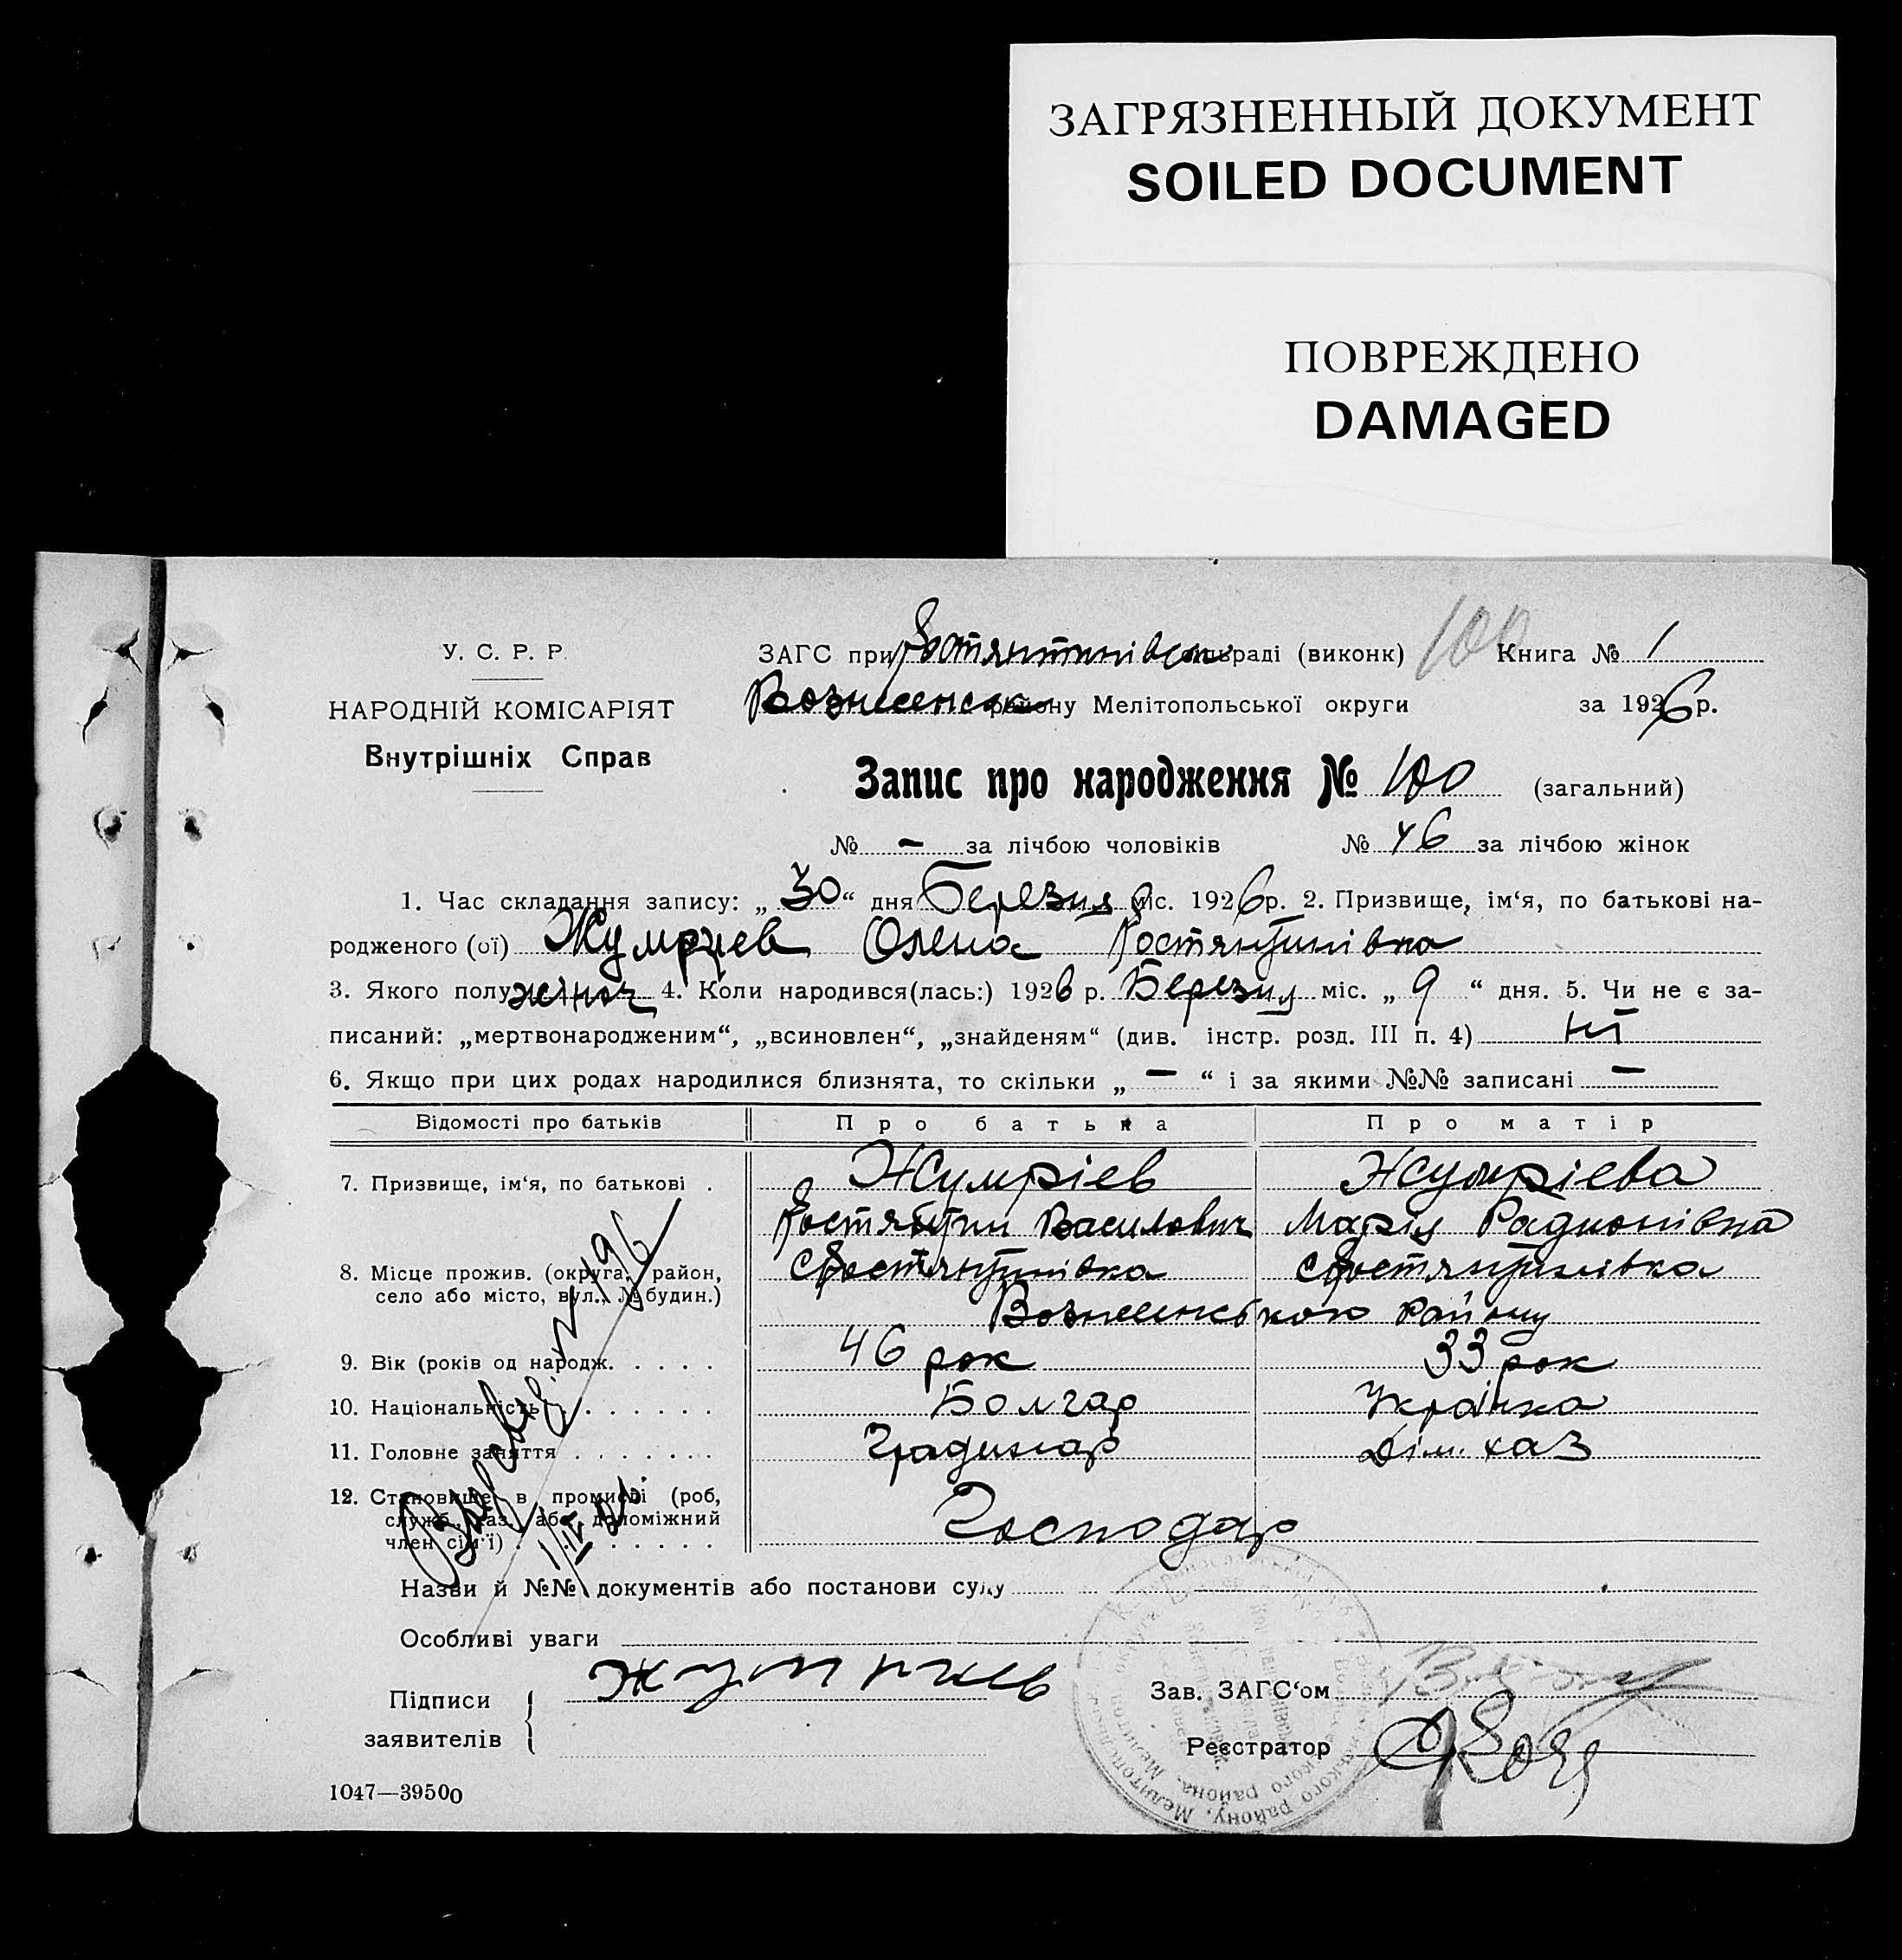 ЗАГРЯЗНЕННЫЙ ДОКУМЕНТ
SOILED DOCUMENT
ПОВРЕЖДЕНО
DAMAGED
У. С. Р. Р.
НАРОДНІЙ КОМІСАРІЯТ
Внутрішніх Справ
ЗАГС при Костянтинівськ сільраді (виконк) 100 Книга № 1
Вознесенськ району Мелітопольської округи за 1926 р.
Запис про народження № 100 (загальний)
№ – за лічбою чоловіків № 46 за лічбою жінок
1. Час складання запису: „ 30 “ дня Березня міс. 1926 р. 2. Призвище, ім‘я, по батькові на-
родженого (ої) Жумрієв Олена Костянтинівна
3. Якого полу жіноч 4. Коли народився(лась:) 1926 р. Березня міс. „ 9 “ дня. 5. Чи не є за-
писаний: „мертвонародженим“, „всиновлен“, „знайденям“ (див. інстр. розд. III п. 4) ні
6. Якщо при цих родах народилися близнята, то скільки „ – “ і за якими №№ записані –
Відомості про батьків Про батька Про матір
7. Призвище, ім‘я, по батькові . Жумрієв Жумрієва
Костянтин Василович Марія Радионівна
8. Місце прожив. (округа, район, село або місто, вул., № будин.) с Костянтинівка с Костянтинівка
Вознесенського району
9. Вік (років од народж. . . . . . 46 рок 33 рок
10. Національність . . . . . . . Болгар Українка
11. Головне заняття . . . . . . . Градинар Дім. хаз
12. Становище в промислі (роб,
служб., хаз. або допоміжний
член сім‘ї) . . . . . . . . . Господар
№ 196
Назви й №№ документів або постанови суду
Особливі уваги
Підписи заявителів Жумриев
Зав. ЗАГС‘ом
Реєстратор
1047—39500